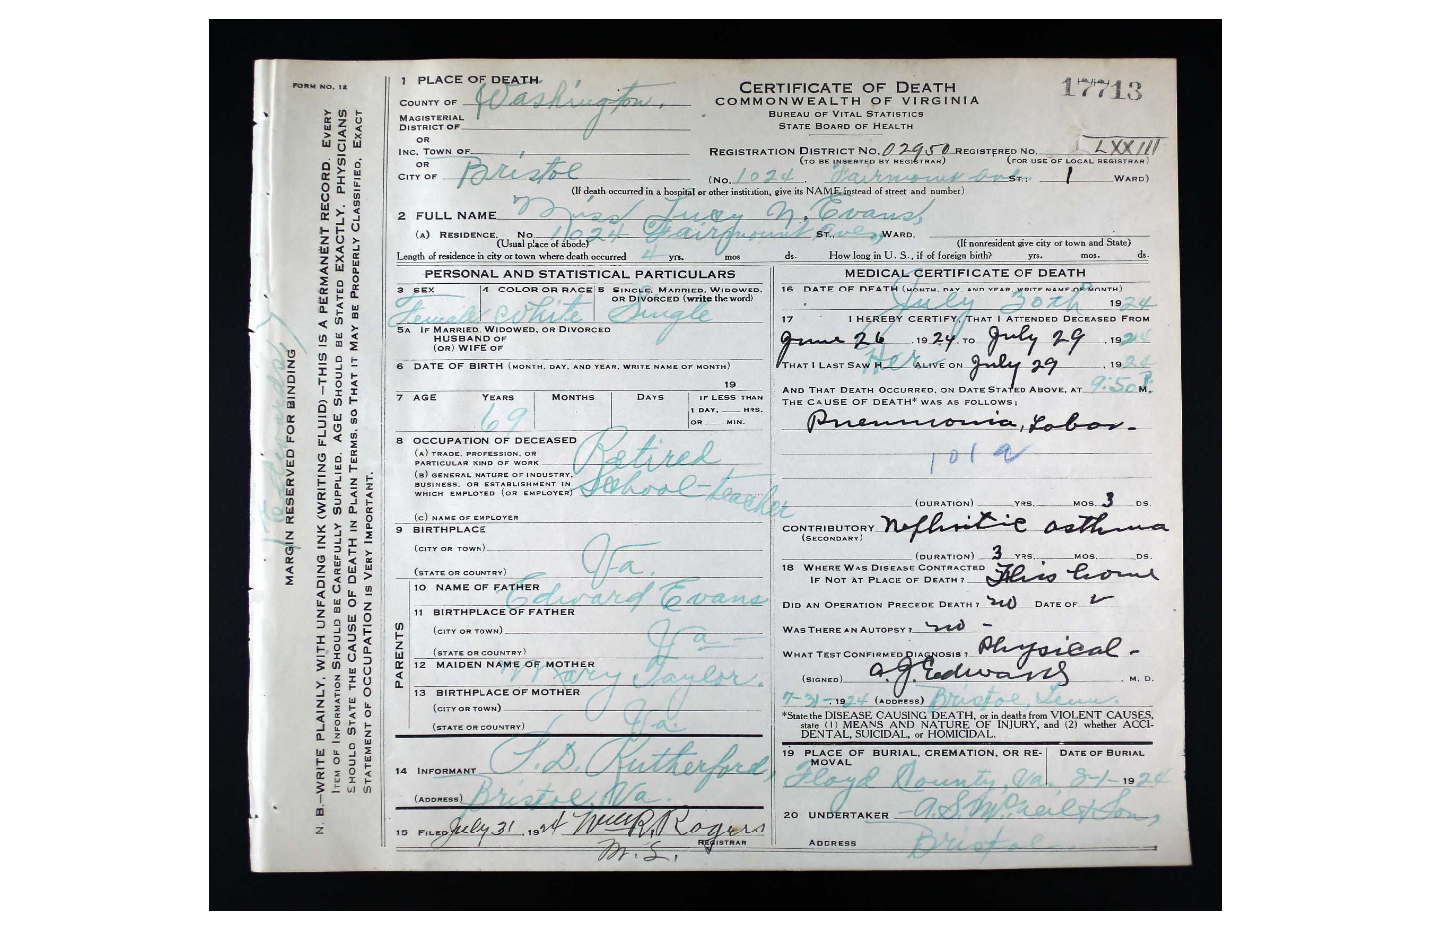 FORM NO. 12
MARGIN RESERVED FOR BINDING
N. B.—WRITE PLAINLY, WITH UNFADING INK (WRITING FLUID)—THIS IS A PERMANENT RECORD. EVERY
ITEM OF INFORMATION SHOULD BE CAREFULLY SUPPLIED. AGE SHOULD BE STATED EXACTLY. PHYSICIANS
SHOULD STATE THE CAUSE OF DEATH IN PLAIN TERMS, SO THAT IT MAY BE PROPERLY CLASSIFIED. EXACT
STATEMENT OF OCCUPATION IS VERY IMPORTANT.
1 PLACE OF DEATH
COUNTY OF Washington.
MAGISTERIAL
DISTRICT OF
OR
INC. TOWN OF
OR
CITY OF Bristol
CERTIFICATE OF DEATH
COMMONWEALTH OF VIRGINIA
BUREAU OF VITAL STATISTICS
STATE BOARD OF HEALTH
17713
REGISTRATION DISTRICT NO. 02950 REGISTERED NO. LXXIII
(TO BE INSERTED BY REGISTRAR) (FOR USE OF LOCAL REGISTRAR)
(NO. 1024 Fairmount Ave ST.; 1 WARD)
(If death occurred in a hospital or other institution, give its NAME instead of street and number)
2 FULL NAME Miss Lucy N. Evans,
(A) RESIDENCE. NO. 1024 Fairmount ST., Ave, WARD.
(Usual place of abode) (If nonresident give city or town and State)
Length of residence in city or town where death occurred 4 yrs. mos ds. How long in U. S., if of foreign birth? yrs. mos. ds.
PERSONAL AND STATISTICAL PARTICULARS
3 SEX 4 COLOR OR RACE 5 SINGLE, MARRIED, WIDOWED,
OR DIVORCED (write the word)
Female White Single
5A IF MARRIED, WIDOWED, OR DIVORCED
HUSBAND OF
(OR) WIFE OF
6 DATE OF BIRTH (MONTH, DAY, AND YEAR, WRITE NAME OF MONTH)
19
7 AGE YEARS MONTHS DAYS IF LESS THAN
1 DAY, HRS.
OR MIN.
69
8 OCCUPATION OF DECEASED
(A) TRADE, PROFESSION, OR
PARTICULAR KIND OF WORK Retired
(B) GENERAL NATURE OF INDUSTRY,
BUSINESS, OR ESTABLISHMENT IN
WHICH EMPLOYED (OR EMPLOYER) School-teacher
(C) NAME OF EMPLOYER
9 BIRTHPLACE
(CITY OR TOWN)
(STATE OR COUNTRY) Va.
PARENTS
10 NAME OF FATHER Edward Evans
11 BIRTHPLACE OF FATHER
(CITY OR TOWN)
(STATE OR COUNTRY) Va —
12 MAIDEN NAME OF MOTHER Mary Taylor.
13 BIRTHPLACE OF MOTHER
(CITY OR TOWN)
(STATE OR COUNTRY) Va.
14 INFORMANT S. D. Rutherford,
(ADDRESS) Bristol, Va.
15 FILED July 31, 1924 Wm R. Rogers
REGISTRAR
MEDICAL CERTIFICATE OF DEATH
16 DATE OF DEATH (MONTH, DAY, AND YEAR, WRITE NAME OF MONTH)
July 30th 1924
17 I HEREBY CERTIFY, THAT I ATTENDED DECEASED FROM
June 26, 1924, TO July 29, 1924
THAT I LAST SAW HER ALIVE ON July 29, 1924
AND THAT DEATH OCCURRED, ON DATE STATED ABOVE, AT 9:50 P. M.
THE CAUSE OF DEATH* WAS AS FOLLOWS:
Pneumonia, Lobar.
101a
(DURATION) YRS. MOS. 3 DS.
CONTRIBUTORY Nephritic asthma
(SECONDARY)
(DURATION) 3 YRS. MOS. DS.
18 WHERE WAS DISEASE CONTRACTED
IF NOT AT PLACE OF DEATH? This home
DID AN OPERATION PRECEDE DEATH? no DATE OF
WAS THERE AN AUTOPSY? no -
WHAT TEST CONFIRMED DIAGNOSIS? Physical -
(SIGNED) A. J. Edwards, M. D.
7-31-, 1924 (ADDRESS) Bristol, Tenn.
*State the DISEASE CAUSING DEATH, or in deaths from VIOLENT CAUSES,
state (1) MEANS AND NATURE OF INJURY, and (2) whether ACCI-
DENTAL, SUICIDAL, or HOMICIDAL.
19 PLACE OF BURIAL, CREMATION, OR RE- DATE OF BURIAL
MOVAL
Floyd County, Va. 8-1-1924
20 UNDERTAKER A. S. McNeil & Son,
ADDRESS Bristol.